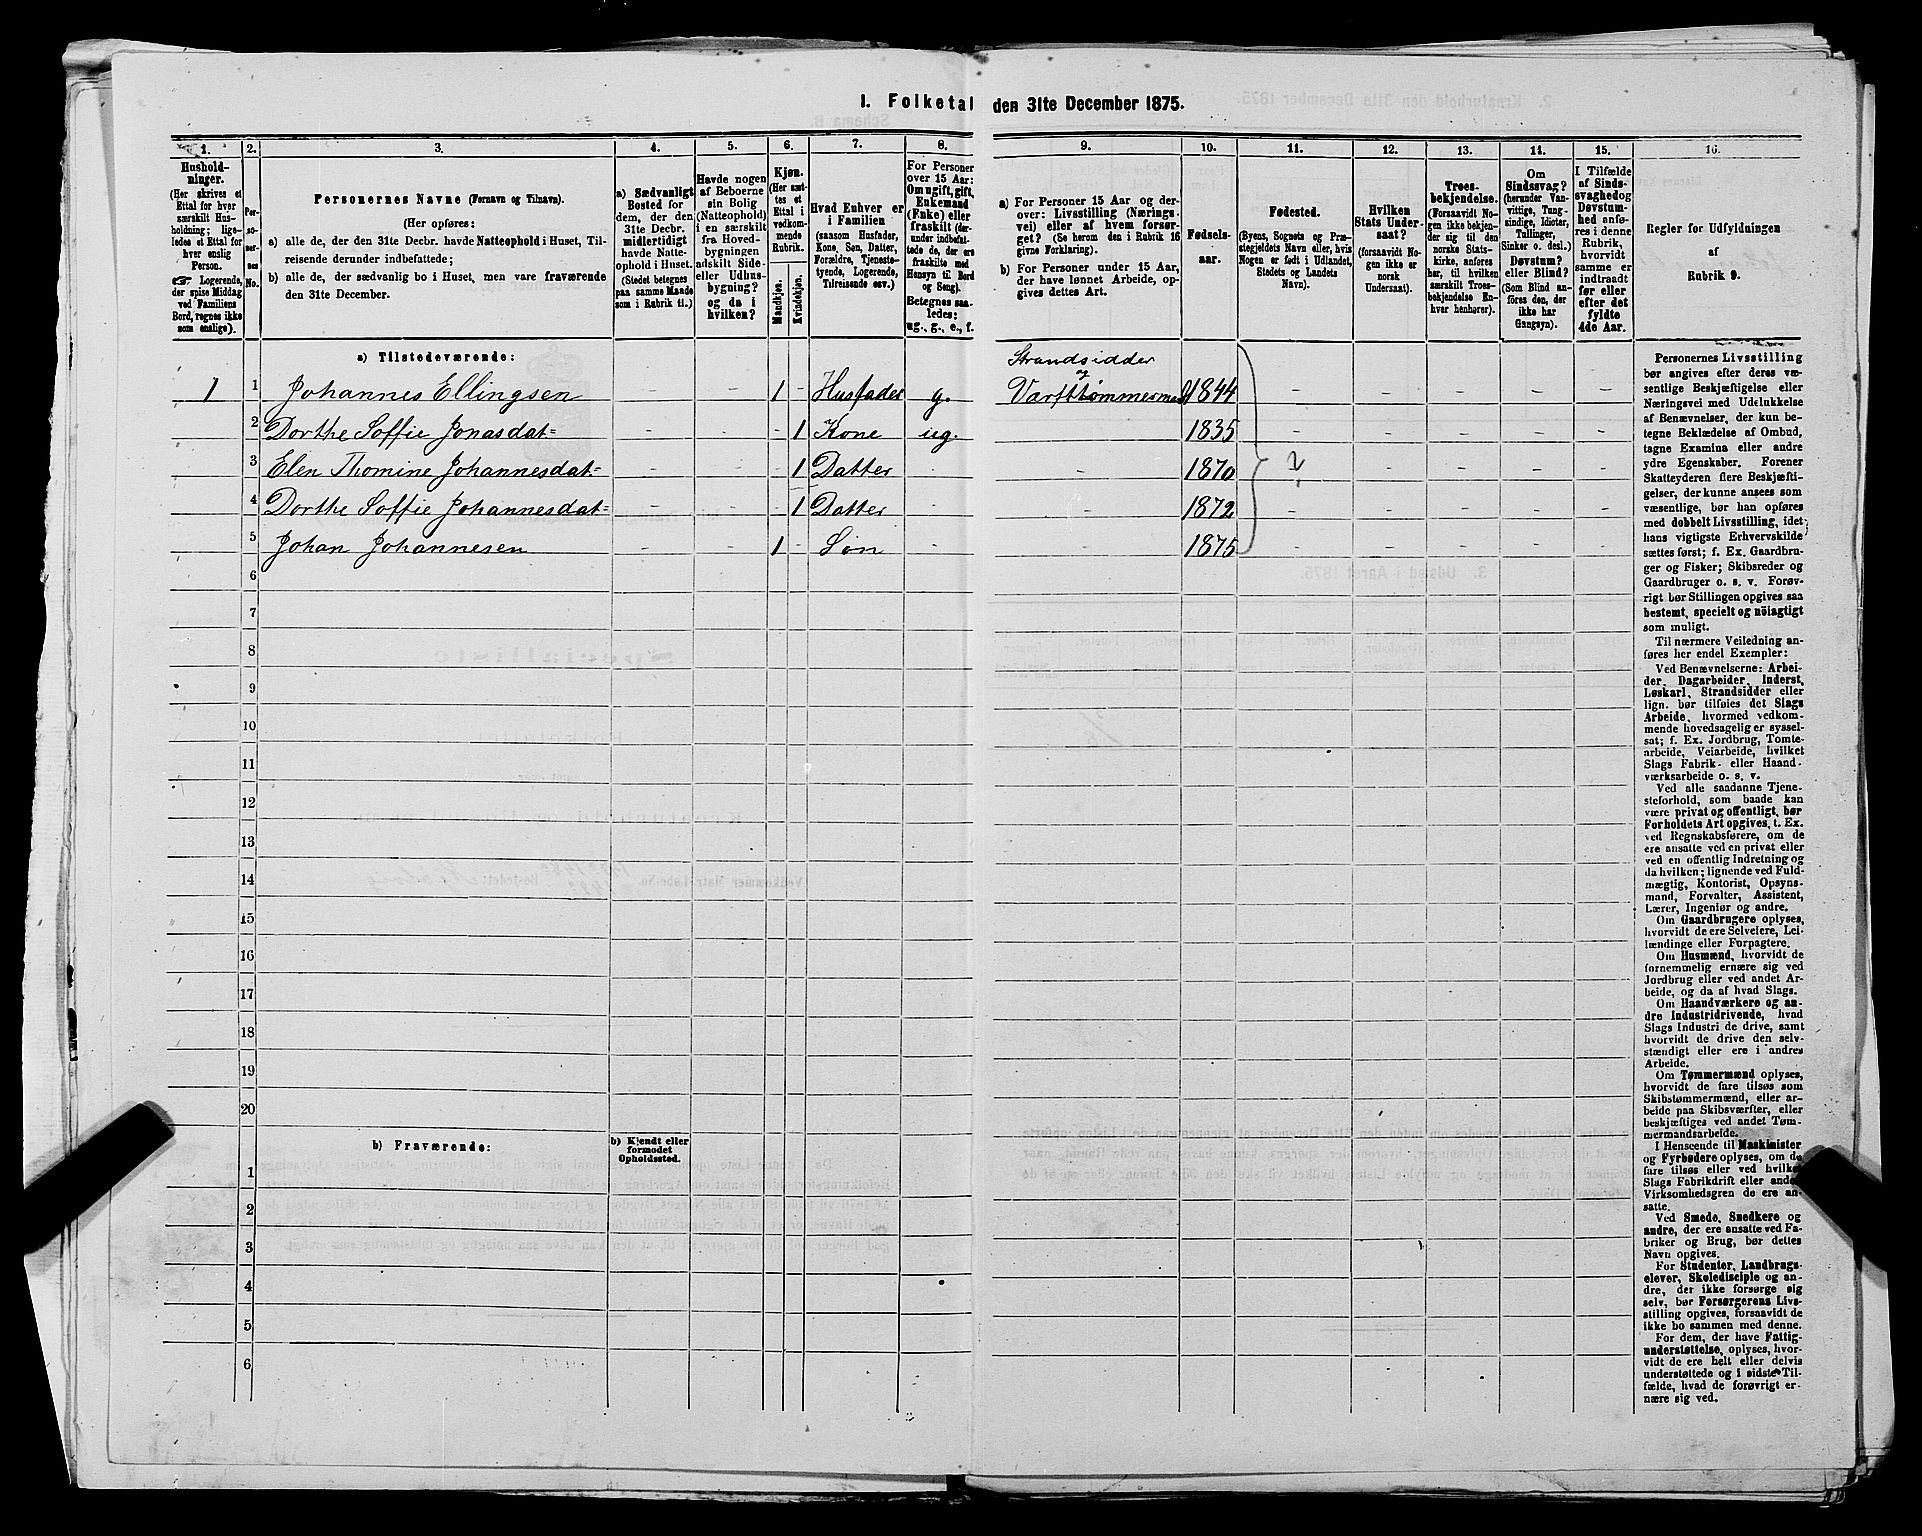 1. Folketal den 31te December 1875.
1. 2. 3. 4. 5. 6. 7. 8. 9. 10. 11. 12. 13. 14. 15. 16.
Hushold-
ninger.
(Her skrives et
Ettal for hver
særskilt Hus-
holdning; lige-
ledes et Ettal for
hver enslig
Person.
☞ Logerende,
der spise Middag
ved Familiens
Bord, regnes ikke
som enslige).
Per-
so-
ner-
nes
No.
Personernes Navne (Fornavn og Tilnavn).
(Her opføres:
a) alle de, der den 31te Decbr. havde Natteophold i Huset, Til-
reisende derunder indbefattede;
b) alle de, der sædvanlig bo i Huset, men vare fraværende
den 31te December.
a) Sædvanligt
Bosted for
dem, der den
31te Decbr.
midlertidigt
havde Natte-
ophold i Huset.
(Stedet betegnes
paa samme Maade
som i Rubrik 11.)
Havde nogen
af Beboerne
sin Bolig
(Natteophold)
i en særskilt
fra Hoved-
bygningen
adskilt Side-
eller Udhus-
bygning?
og da i
hvilken?
Kjøn.
(Her sæt-
tes et
Ettal i
vedkom-
mende
Rubrik.
Mandkjøn.
Kvindekjøn.
Hvad Enhver er
i Familien
(saasom Husfader,
Kone, Søn, Datter,
Forældre, Tjeneste-
tyende, Logerende,
Tilreisende osv.)
For Personer
over 15 Aar:
Om ugift, gift,
Enkemand
(Enke) eller
fraskilt (der-
under indbefat-
tede de, der ere
fraskilte med
Hensyn til Bord
og Seng).
Betegnes saa-
ledes:
ug., g., e., f.
a) For Personer 15 Aar og der-
over: Livsstilling (Nærings-
vei) eller af hvem forsør-
get? (Se herom den i Rubrik 16
givne Forklaring).
b) For Personer under 15 Aar,
der have lønnet Arbeide, op-
gives dettes Art.
Fødsels-
aar.
Fødested.
(Byens, Sognets og Præ-
stegjeldets Navn eller, hvis
Nogen er født i Udlandet,
Stedets og Landets
Navn).
Hvilken
Stats Under-
saat?
(forsaavidt No-
gen ikke er
norsk
Undersaat).
Troes-
bekjendelse.
(Forsaavidt No-
gen ikke bekjen-
der sig til den
norske Stats-
kirke, anføres
her, til hvilken
særskilt Troes-
bekjendelse En-
hver henhører).
Om
Sindssvag?
(herunder Van-
vittige, Tung-
sindige, Idioter,
Tullinger,
Sinker o. desl.)
Døvstum?
eller Blind?
(Som Blind an-
føres den, der
ikke har
Gangsyn).
I Tilfælde
af Sinds-
svaghed og
Døvstum-
hed anfø-
res i denne
Rubrik,
hvorvidt
samme er
indtraadt
før eller
efter det
fyldte
4de Aar.
Regler for Udfyldningen
af
Rubrik 9.
a) Tilstedeværende:
Strandsidder
og
1 1 Johannes Ellingsen - - 1 - Husfader g. Værfttømmermand 1844 - - - - -
2 Dorthe Soffie Jonasdat= - - 1 Kone ug. 1835 - - - - -
3 Elen Thomine Johannesdat= - - 1 Datter - - 1870 ? - - - -
4 Dorthe Soffie Johannesdat= - - 1 Datter - - 1872 - - - - -
5 Johan Johannesen - - 1 - Søn - - 1875 - - - - -
6
7
8
9
10
11
12
13
14
15
16
17
18
19
20
b) Fraværende:
b) Kjendt eller
formodet
Opholdssted.
1
2
3
4
5
6
Personernes Livsstilling
bør angives efter deres væ-
sentlige Beskjæftigelse eller
Næringsvei med Udelukkelse
af Benævnelser, der kun be-
tegne Beklædelse af Ombud,
tagne Examina eller andre
ydre Egenskaber. Forener
Skatteyderen flere Beskjæfti-
gelser, der kunne ansees som
væsentlige, bør han opføres
med dobbelt Livsstilling, idet
hans vigtigste Erhvervskilde
sættes først; f. Ex. Gaardbru-
ger og Fisker; Skibsreder og
Gaardbruger o. s. v. Forøv-
rigt bør Stillingen opgives saa
bestemt, specielt og nöiagtigt
som muligt.
Til nærmere Veiledning an-
føres her endel Exempler:
Ved Benævnelserne: Arbei-
der, Dagarbeider, Inderst,
Løskarl, Strandsidder eller
lign. bør tilføies det Slags
Arbeide, hvormed vedkom-
mende hovedsagelig er syssel-
sat; f. Ex. Jordbrug, Tomte-
arbeide, Veiarbeide, hvilket
Slags Fabrik- eller Haand-
værksarbeide o. s. v.
Ved alle saadanne Tjene-
steforhold, som baade kan
være privat og offentligt, bør
Forholdets Art opgives, t. Ex.
ved Regnskabsførere, om de
ere ansatte ved en privat eller
ved en offentlig Indretning og
da hvilken; lignende ved Fuld-
mægtig, Kontorist, Opsyns-
mand, Forvalter, Assistent,
Lærer, Ingeniør og andre.
Om Gaardbrugere oplyses,
hvorvidt de ere Selveiere, Lei-
lændinge eller Forpagtere.
Om Husmænd, hvorvidt de
fornemmelig ernære sig ved
Jordbrug eller ved andet Ar-
beide, og da af hvad Slags.
Om Haandværkere og an-
dre Industridrivende, hvad
Slags Industri de drive, samt
hvorvidt de drive den selv-
stændigt eller ere i andres
Arbeide.
Om Tømmermænd oplyses,
hvorvidt de fare tilsøs som
Skibstømmermænd, eller ar-
beide paa Skibsværfter, eller
beskjæftiges ved andet Tøm-
mermandsarbeide.
I Henseende til Maskinister
og Fyrbødere oplyses, om de
fare tilsøs eller ved hvilket
Slags Fabrikdrift eller anden
Virksomhedsgren de ere an-
satte.
Ved Smede, Snedkere og
andre, der ere ansatte ved Fa-
briker og Brug, bør dettes
Navn opgives.
For Studenter, Landbrugs-
elever, Skoledisciple og an-
dre, der ikke forsørge sig
selv, bør Forsørgerens Livs-
stilling opgives, forsaavidt de
ikke bo sammen med denne.
For dem, der have Fattig-
understøttelse, oplyses, hvor-
vidt de ere helt eller delvis
understøttede og i sidste Til-
fælde, hvad de forøvrigt er-
nære sig ved.